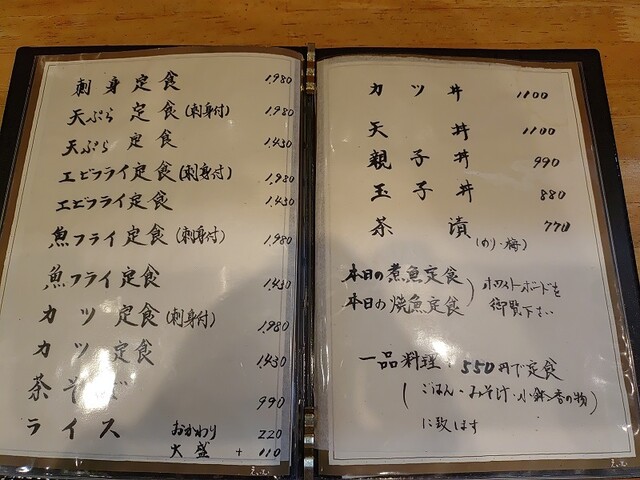 刺身定食 1,980
天ぷら定食(刺身付) 1,980
天ぷら定食 1,430
エビフライ定食(刺身付) 1,980
エビフライ定食 1,430
魚フライ定食(刺身付) 1,980
魚フライ定食 1,430
カツ定食(刺身付) 1,980
カツ定食 1,430
茶そば 990
ライス おかわり 220
大盛 + 110
カツ丼 1100
天丼 1100
親子丼 990
玉子丼 880
茶漬 770
(のり・梅)
本日の煮魚定食
本日の焼魚定食
ホワイトボードを
御覧下さい
一品料理 550円で定食
(ごはん・みそ汁・小鉢・香の物)
に致します